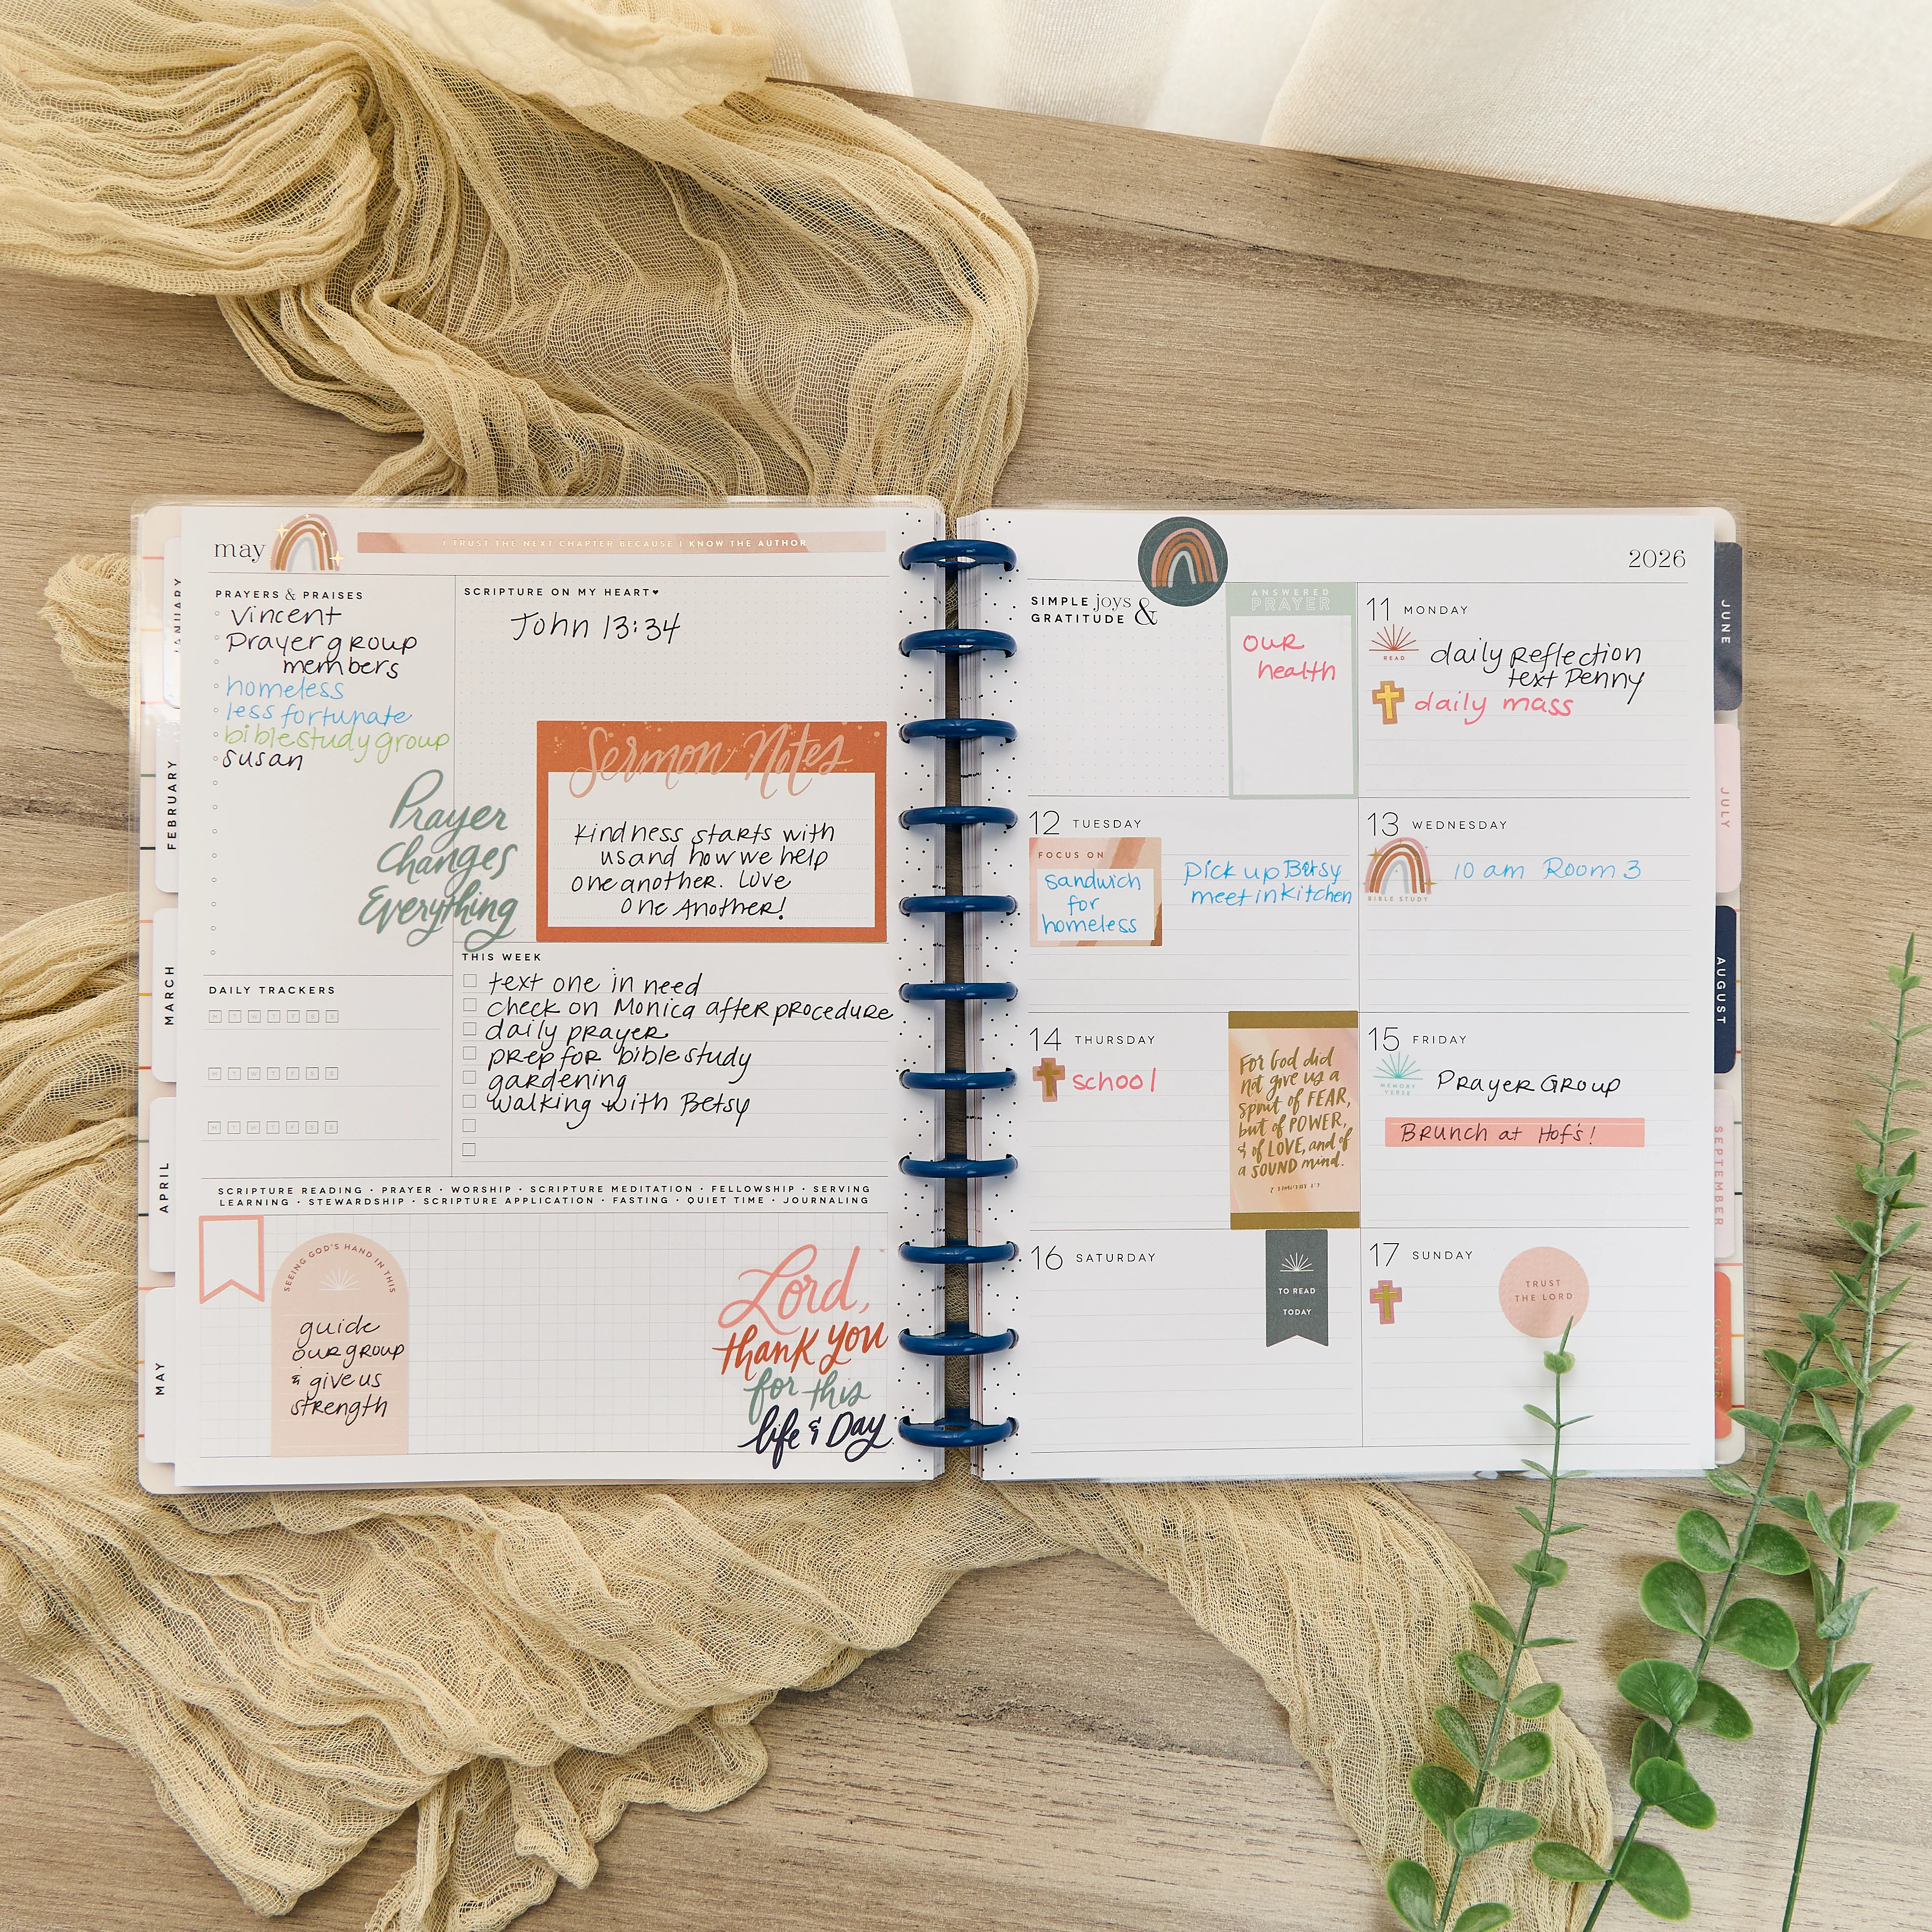 may
I TRUST THE NEXT CHAPTER BECAUSE I KNOW THE AUTHOR
PRAYERS & PRAISES
Vincent
Prayer group
members
homeless
less fortunate
bible study group
susan
Prayer
Changes
Everything
SCRIPTURE ON MY HEART♥
John 13:34
Sermon Notes
Kindness starts with
us and how we help
one another. Love
One Another!
DAILY TRACKERS
M T W T F S S
M T W T F S S
M T W T F S S
THIS WEEK
text one in need
check on Monica after procedure
daily prayer
prep for bible study
gardening
walking with Betsy
SCRIPTURE READING • PRAYER • WORSHIP • SCRIPTURE MEDITATION • FELLOWSHIP • SERVING
LEARNING • STEWARDSHIP • SCRIPTURE APPLICATION • FASTING • QUIET TIME • JOURNALING
SEEING GOD'S HAND IN THIS
guide
our group
& give us
strength
Lord,
thank you
for this
life & Day
JANUARY
FEBRUARY
MARCH
APRIL
MAY
2026
SIMPLE joys &
GRATITUDE
ANSWERED
PRAYER
our
health
11 MONDAY
READ
daily Reflection
text Penny
daily mass
12 TUESDAY
FOCUS ON
Sandwich
for
homeless
Pick up Betsy
meet in kitchen
13 WEDNESDAY
BIBLE STUDY
10 am Room 3
14 THURSDAY
school
For God did
not give us a
spirit of FEAR,
but of POWER,
& of LOVE, and of
a SOUND mind.
2 TIMOTHY 1:7
15 FRIDAY
MEMORY
VERSE
Prayer Group
Brunch at Hof's!
16 SATURDAY
TO READ
TODAY
17 SUNDAY
TRUST
THE LORD
JUNE
JULY
AUGUST
SEPTEMBER
OCTOBER